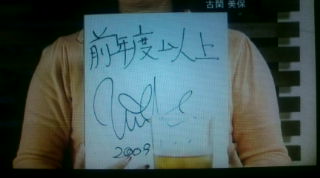 古閑 美保
前年度以上
2009